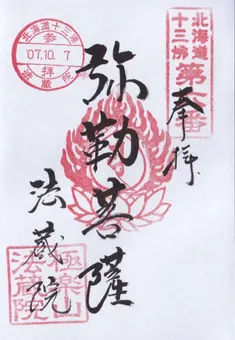 北海道
十三佛
第六番
奉拝
弥勒菩薩
法蔵院
北海道十三佛
参拝
'07.10. 7
法蔵院
極楽山
法蔵院